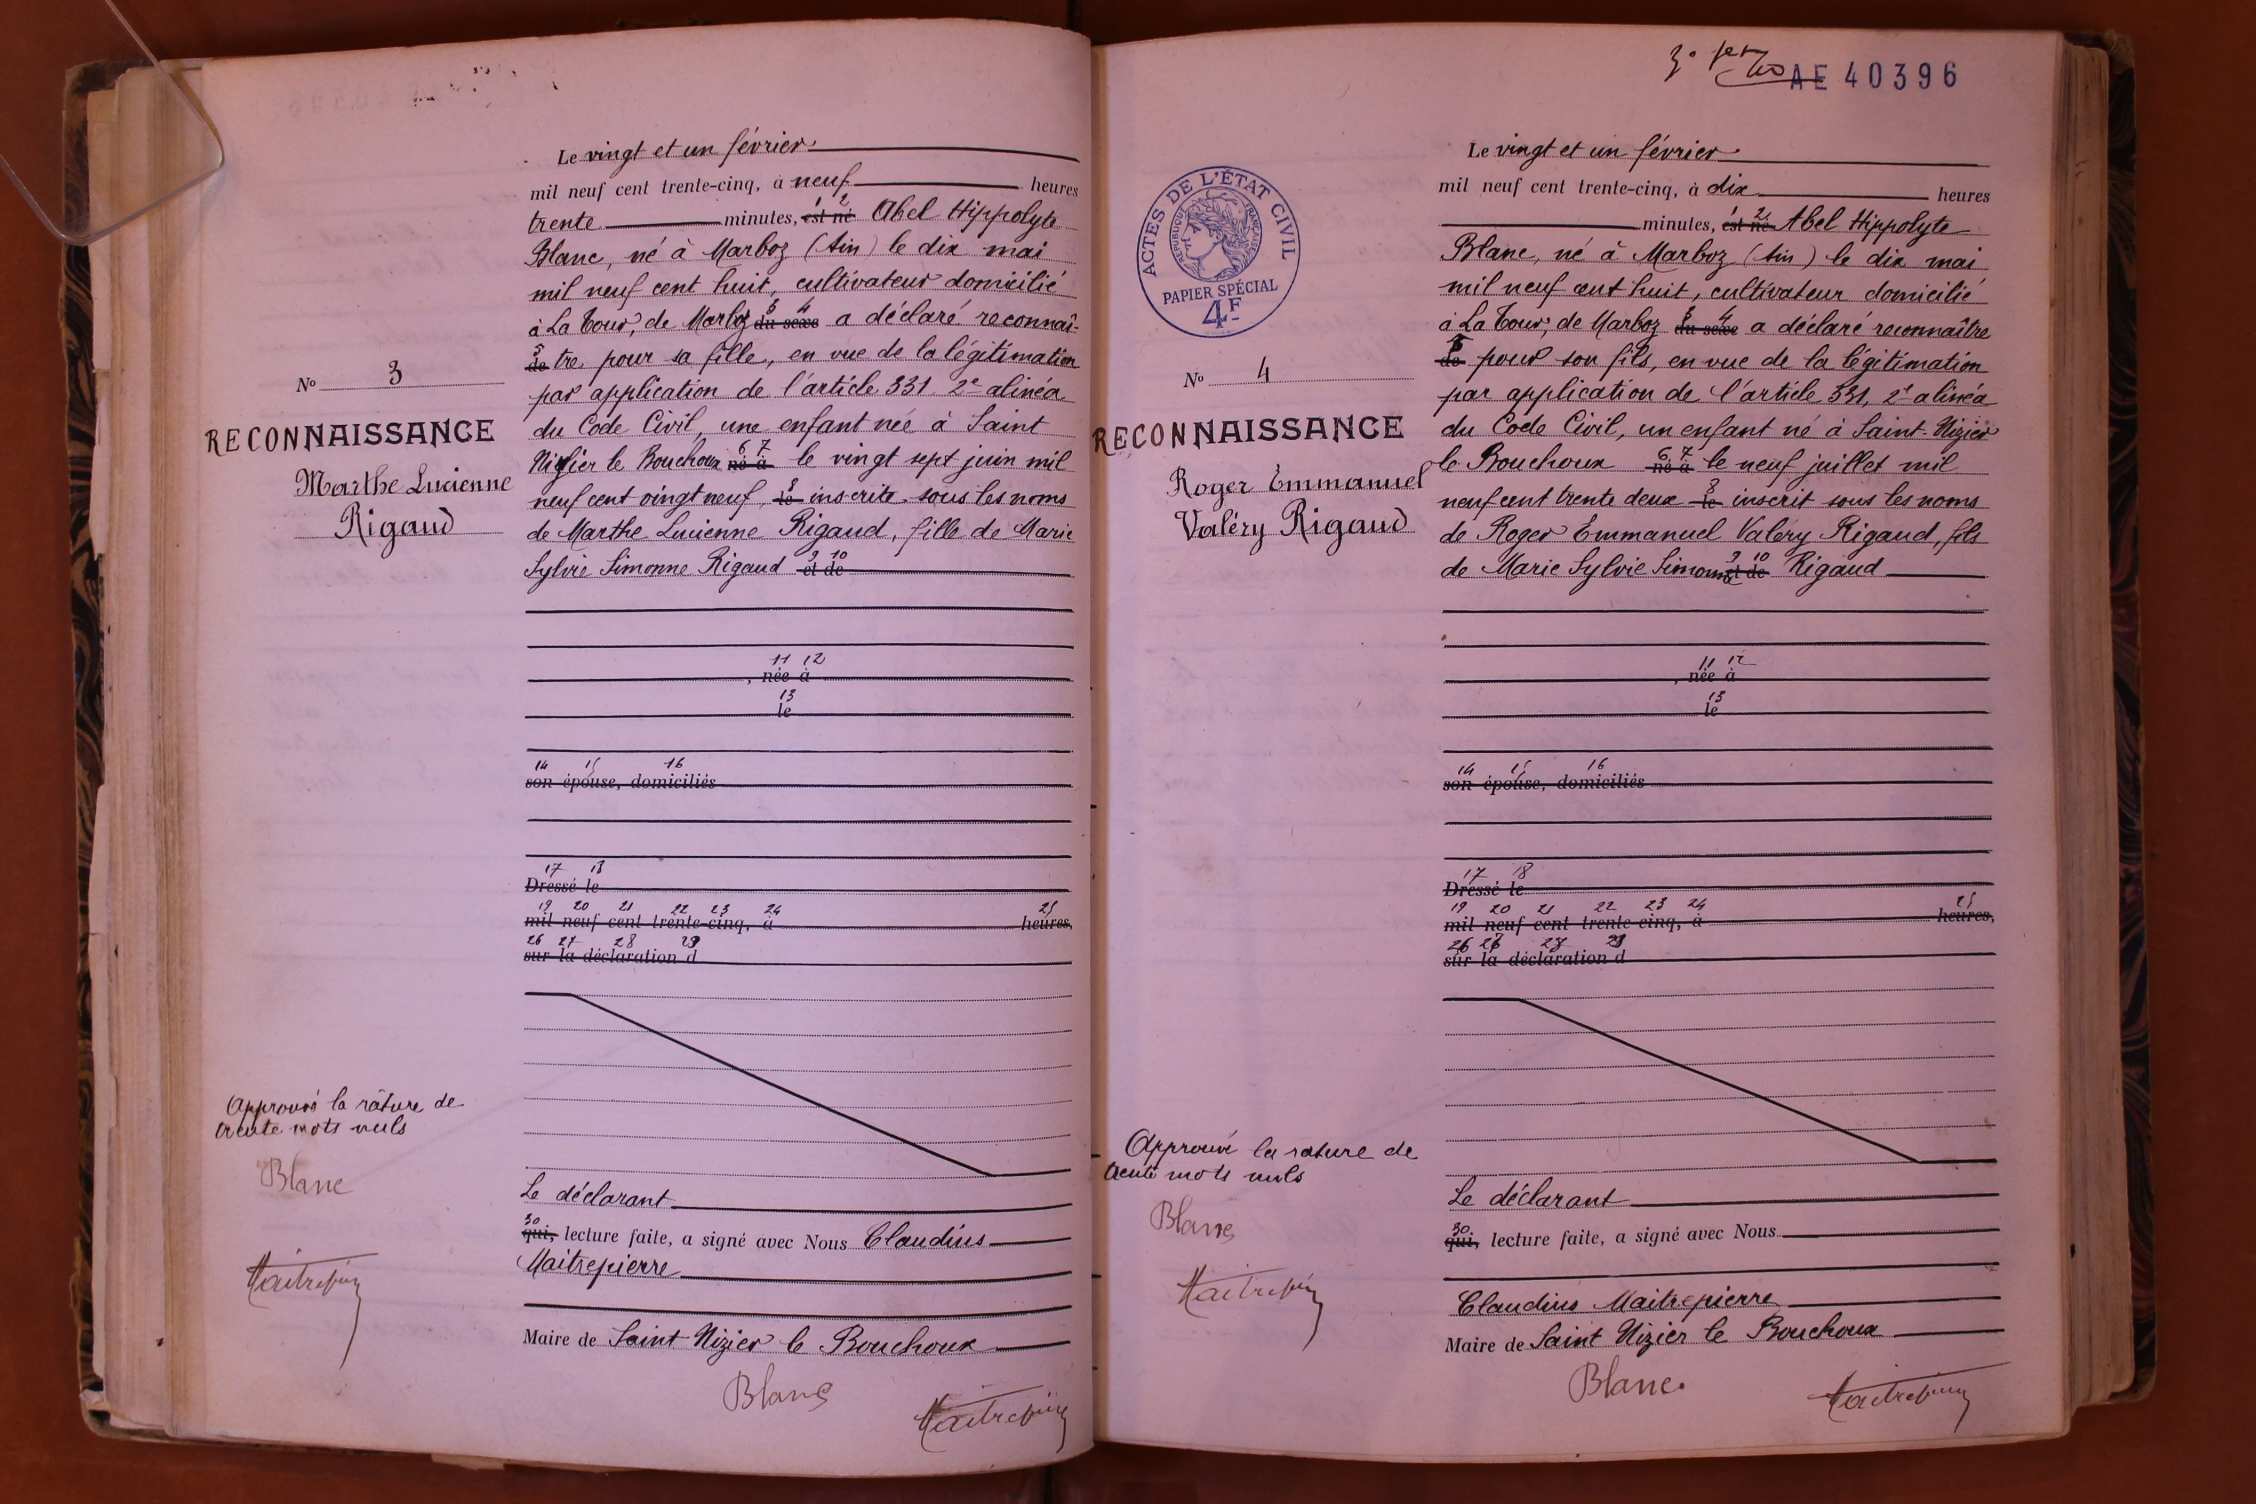 Le vingt et un février
mil neuf cent trente-cinq, à neuf heures
trente minutes, est né Abel Hippolyte
Blanc, né à Marboz (Ain) le dix mai
mil neuf cent huit, cultivateur domicilié
à La Tour, de Marboz du sexe a déclaré reconnaî-
de tre pour sa fille, en vue de la légitimation
par application de l'article 331 2e alinéa
du Code Civil, une enfant née à Saint
Nizier le Bouchoux né à le vingt sept juin mil
neuf cent vingt neuf, le inscrite sous les noms
de Marthe Lucienne Rigaud, fille de Marie
Sylvie Simonne Rigaud et de
No 3
RECONNAISSANCE
Marthe Lucienne
Rigaud
11 12
, née à
13
le
14 15 16
son épouse, domiciliés
17 18
Dressé le
19 20 21 22 23 24 25
mil neuf cent trente-cinq, à heures,
26 27 28 29
sur la déclaration d
Approuvé la rature de
trente mots nuls
Blanc
Maitrepierre
Le déclarant
30
qui, lecture faite, a signé avec Nous Claudius
Maitrepierre
Maire de Saint Nizier le Bouchoux
Blanc
Maitrepierre
AE 40396
ACTES DE L'ÉTAT CIVIL
RÉPUBLIQUE FRANÇAISE
PAPIER SPÉCIAL
4F
Le vingt et un février
mil neuf cent trente-cinq, à dix heures
minutes, est né Abel Hippolyte
Blanc, né à Marboz (Ain) le dix mai
mil neuf cent huit, cultivateur domicilié
à La Tour, de Marboz du sexe a déclaré reconnaître
de pour son fils, en vue de la légitimation
par application de l'article 331, 2e alinéa
du Code Civil, un enfant né à Saint-Nizier
le Bouchoux né à le neuf juillet mil
neuf cent trente deux le inscrit sous les noms
de Roger Emmanuel Valéry Rigaud, fils
de Marie Sylvie Simonne et de Rigaud
No 4
RECONNAISSANCE
Roger Emmanuel
Valéry Rigaud
11 12
, née à
13
le
14 15 16
son épouse, domiciliés
17 18
Dressé le
19 20 21 22 23 24 25
mil neuf cent trente-cinq, à heures,
26 26 27 28
sur la déclaration d
Approuvé la rature de
trente mots nuls
Blanc
Maitrepierre
Le déclarant
30
qui, lecture faite, a signé avec Nous
Claudius Maitrepierre
Maire de Saint Nizier le Bouchoux
Blanc.
Maitrepierre